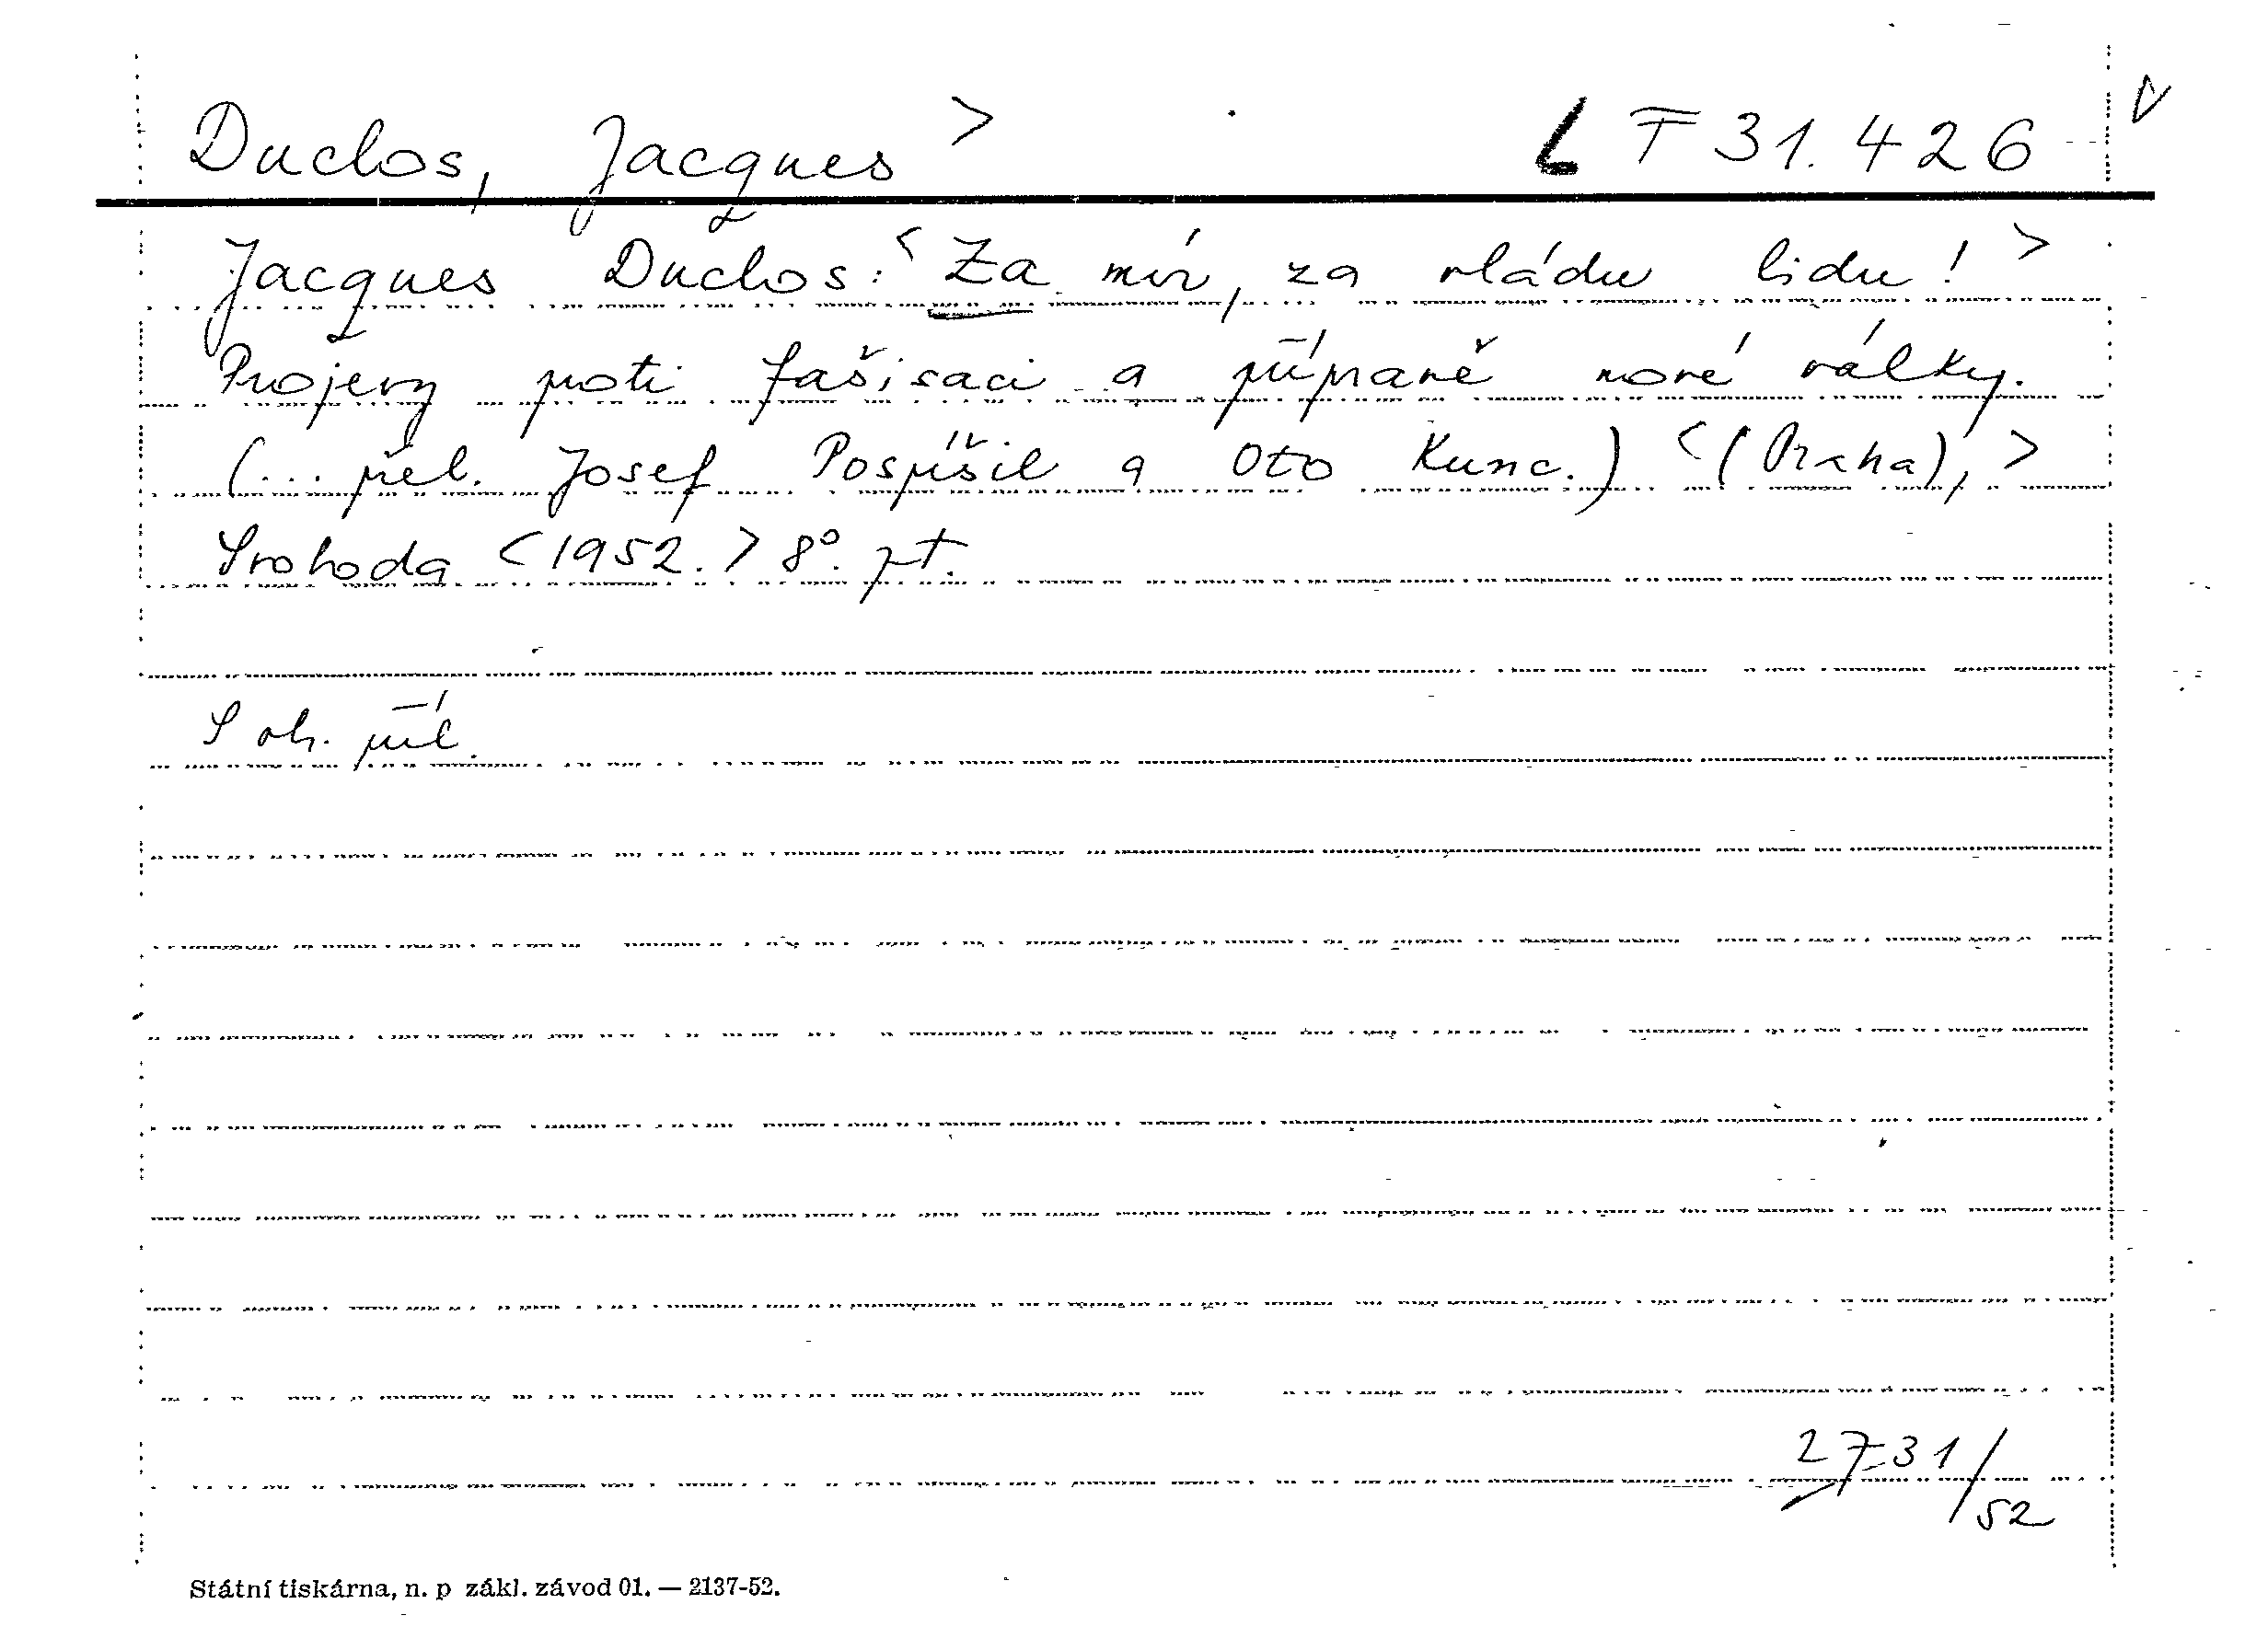 Duclos, Jacques > L F 31.426 V
Jacques Duclos: < Za mír, za vládu lidu! >
Projevy proti fašisaci a přípravě nové války.
(... přel. Josef Pospíšil a Oto Kunc.) < (Praha), >
Svoboda < 1952. > 8°. pt.
S ob. příl.
2731/52
Státní tiskárna, n. p zákl. závod 01. — 2137-52.